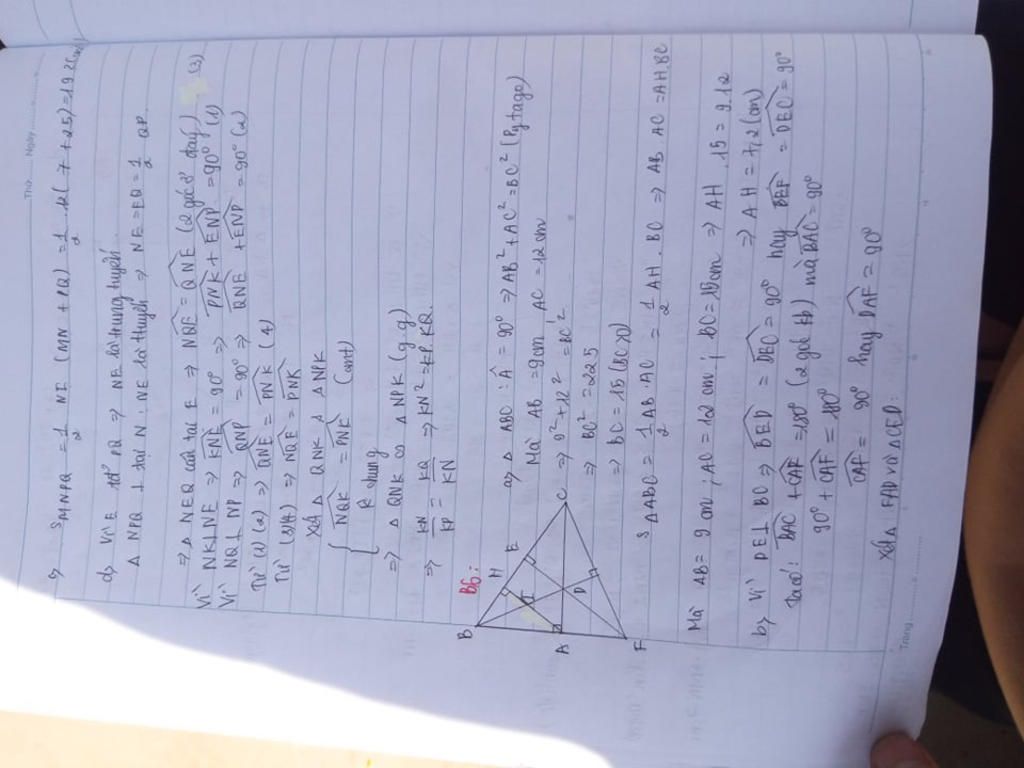 Thứ ........ Ngày ........
c) S MNPQ = 1/2 NK (MN + PQ) = 1/2 . 12 ( 7 + 25) = 192 (cm)
d) Vì E tđ PQ => NE là trung tuyến
Δ NPQ ⊥ tại N . NE là t tuyến => NE = EQ = 1/2 QP.
=> Δ NEQ cân tại E => NQE = QNE (2 góc ở đáy) (3)
Vì NK⊥NE => KNE = 90° => PNK + ENP = 90° (1)
Vì NQ⊥ NP => QNP = 90° => QNE + ENP = 90° (2)
Từ (1) (2) => QNE = PNK (4)
Từ (3)(4) => NQE = PNK
Xét Δ QNK & Δ NPK
NQK = PNK (cmt)
K chung
=> Δ QNK ∽ Δ NPK (g.g)
=> KN/KP = KQ/KN => KN² = KP.KQ.
B6:
B H E C I D A F
a) Δ ABC : Â = 90° => AB² + AC² = BC² (Pytago)
Mà AB = 9cm AC = 12 cm
=> 9² + 12² = BC²
=> BC² = 225
=> BC = 15 (BC>0)
S ΔABC = 1/2 AB . AC = 1/2 AH . BC => AB . AC = AH.BC
Mà AB = 9 cm ; AC = 12 cm ; BC = 15cm => AH . 15 = 9.12
=> AH = 7,2 (cm)
b) Vì DE⊥ BC => BED = DEC = 90° hay BEF = DEC = 90°
Ta có: BAC + CAF = 180° (2 góc kb) mà BAC = 90°
90° + CAF = 180°
CAF = 90° hay DAF = 90°
Xét Δ FAD và ΔCED:
Trang ........